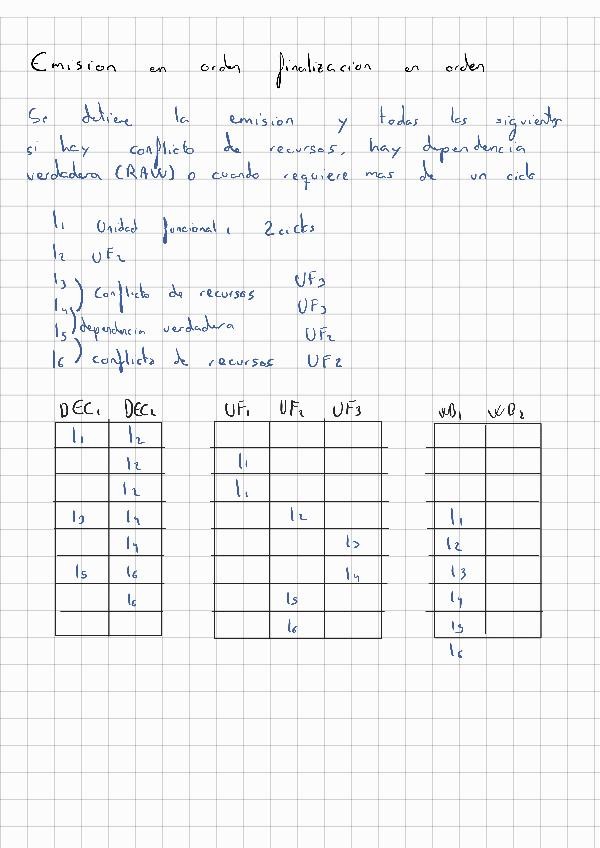 Emision en orden finalizacion en orden
Se detiene la emision y todas las siguientes
si hay conflicto de recursos, hay dependencia
verdadera (RAW) o cuando requiere mas de un ciclo
I1 Unidad funcional 1 2 ciclos
I2 UF2
I3 ) Conflicto de recursos UF3
I4 UF3
I5 ) dependencia verdadera UF2
I6 ) conflicto de recursos UF2
DEC1 DEC2 UF1 UF2 UF3 WB1 WB2
I1 I2
I2 I1
I2 I1
I3 I4 I2 I1
I4 I3 I2
I5 I6 I4 I3
I6 I5 I4
I6 I5
I6